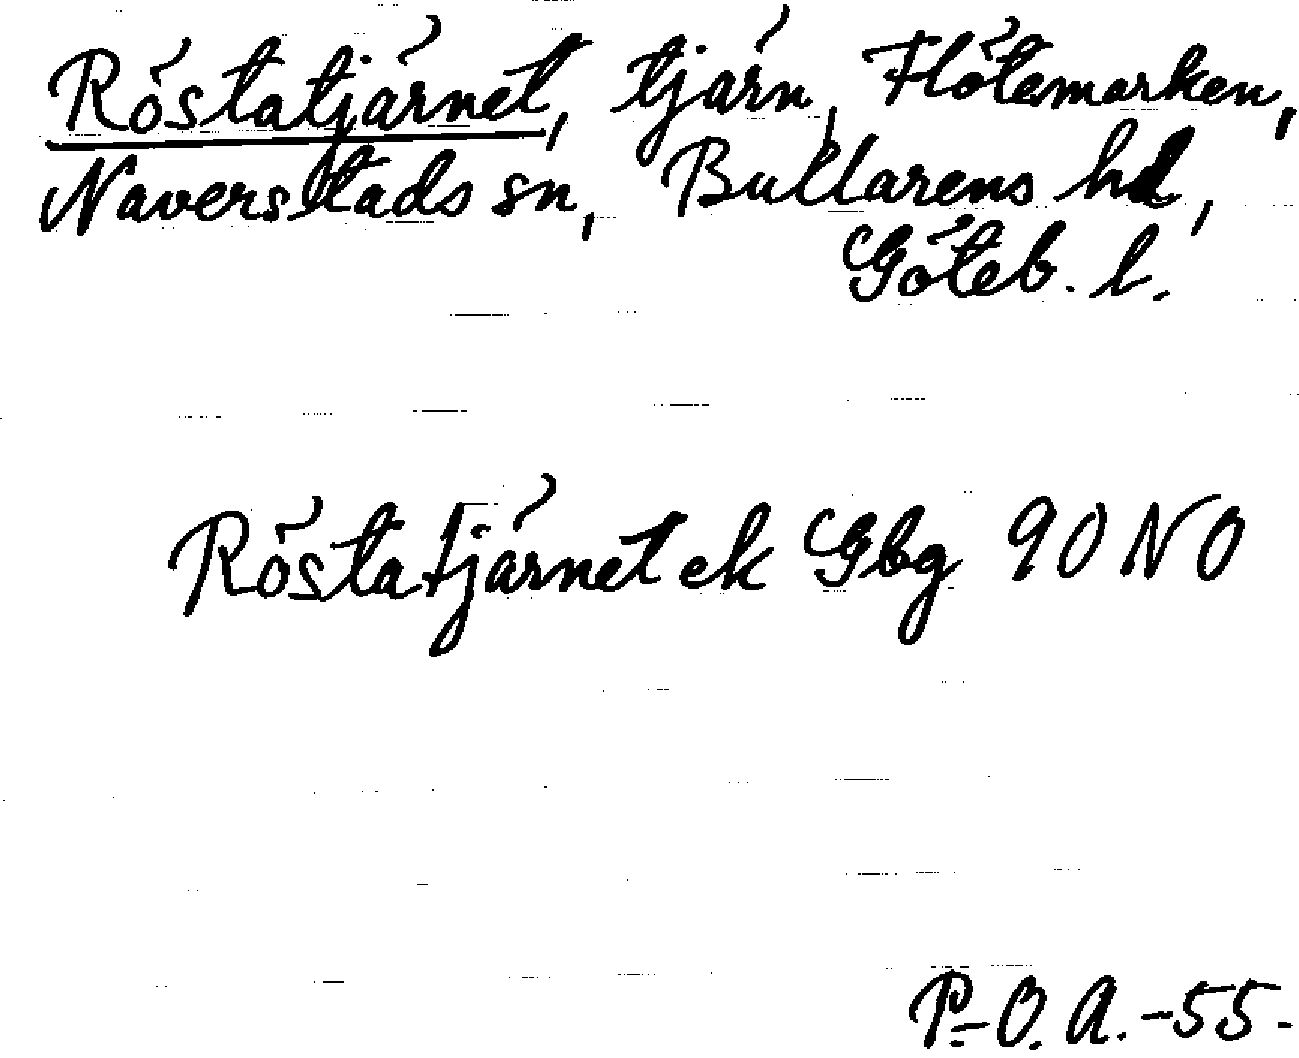 Röstatjärnet, tjärn, Flötemarken,
Naverstads sn, Bullarens hd,
Göteb. l.
Röstatjärnet ek Gbg 90 NO
P.-O. A. -55-